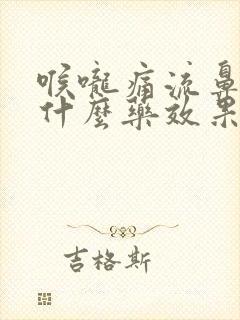 喉嚨痛流鼻
什麼藥效果
吉格斯